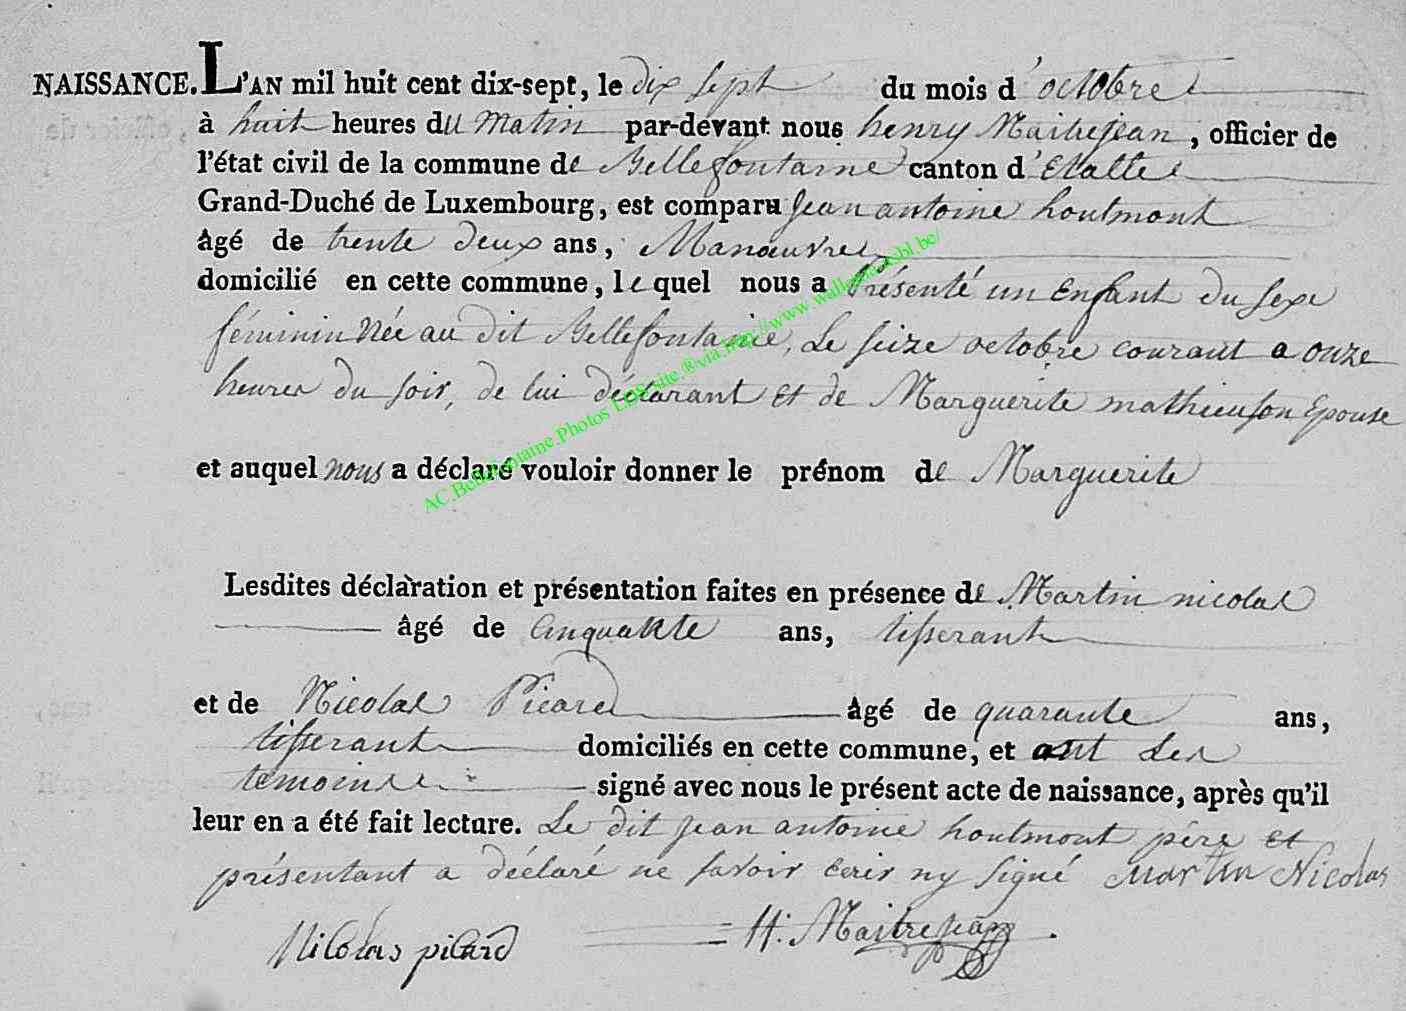 NAISSANCE. L'AN mil huit cent dix-sept, le dix sept du mois d'octobre
à huit heures du matin par-devant nous henry Maitrejean, officier de
l'état civil de la commune de Bellefontaine canton d'Etalle
Grand-Duché de Luxembourg, est comparu jean antoine houtmont
âgé de trente deux ans, Manœuvre
domicilié en cette commune, le quel nous a présenté un Enfant du sexe
féminin Née au dit Bellefontaine, Le seize octobre courant a onze
heures du soir, de lui déclarant et de Marguerite mathieu son Epouse
et auquel nous a déclaré vouloir donner le prénom de Marguerite
Lesdites déclaration et présentation faites en présence de Martin nicolas
âgé de Cinquante ans, tisserant
et de Nicolas Picard âgé de quarante ans,
tisserant domiciliés en cette commune, et ont Les
temoins signé avec nous le présent acte de naissance, après qu'il
leur en a été fait lecture. Le dit jean antoine houtmont père et
présentant a déclaré ne savoir ecrir ny signé Martin Nicolas
Nicolas picard H: Maitrejean
AC.Bellefontaine.Photos LDS.site ®via.http://www.wallonia.asbl.be/